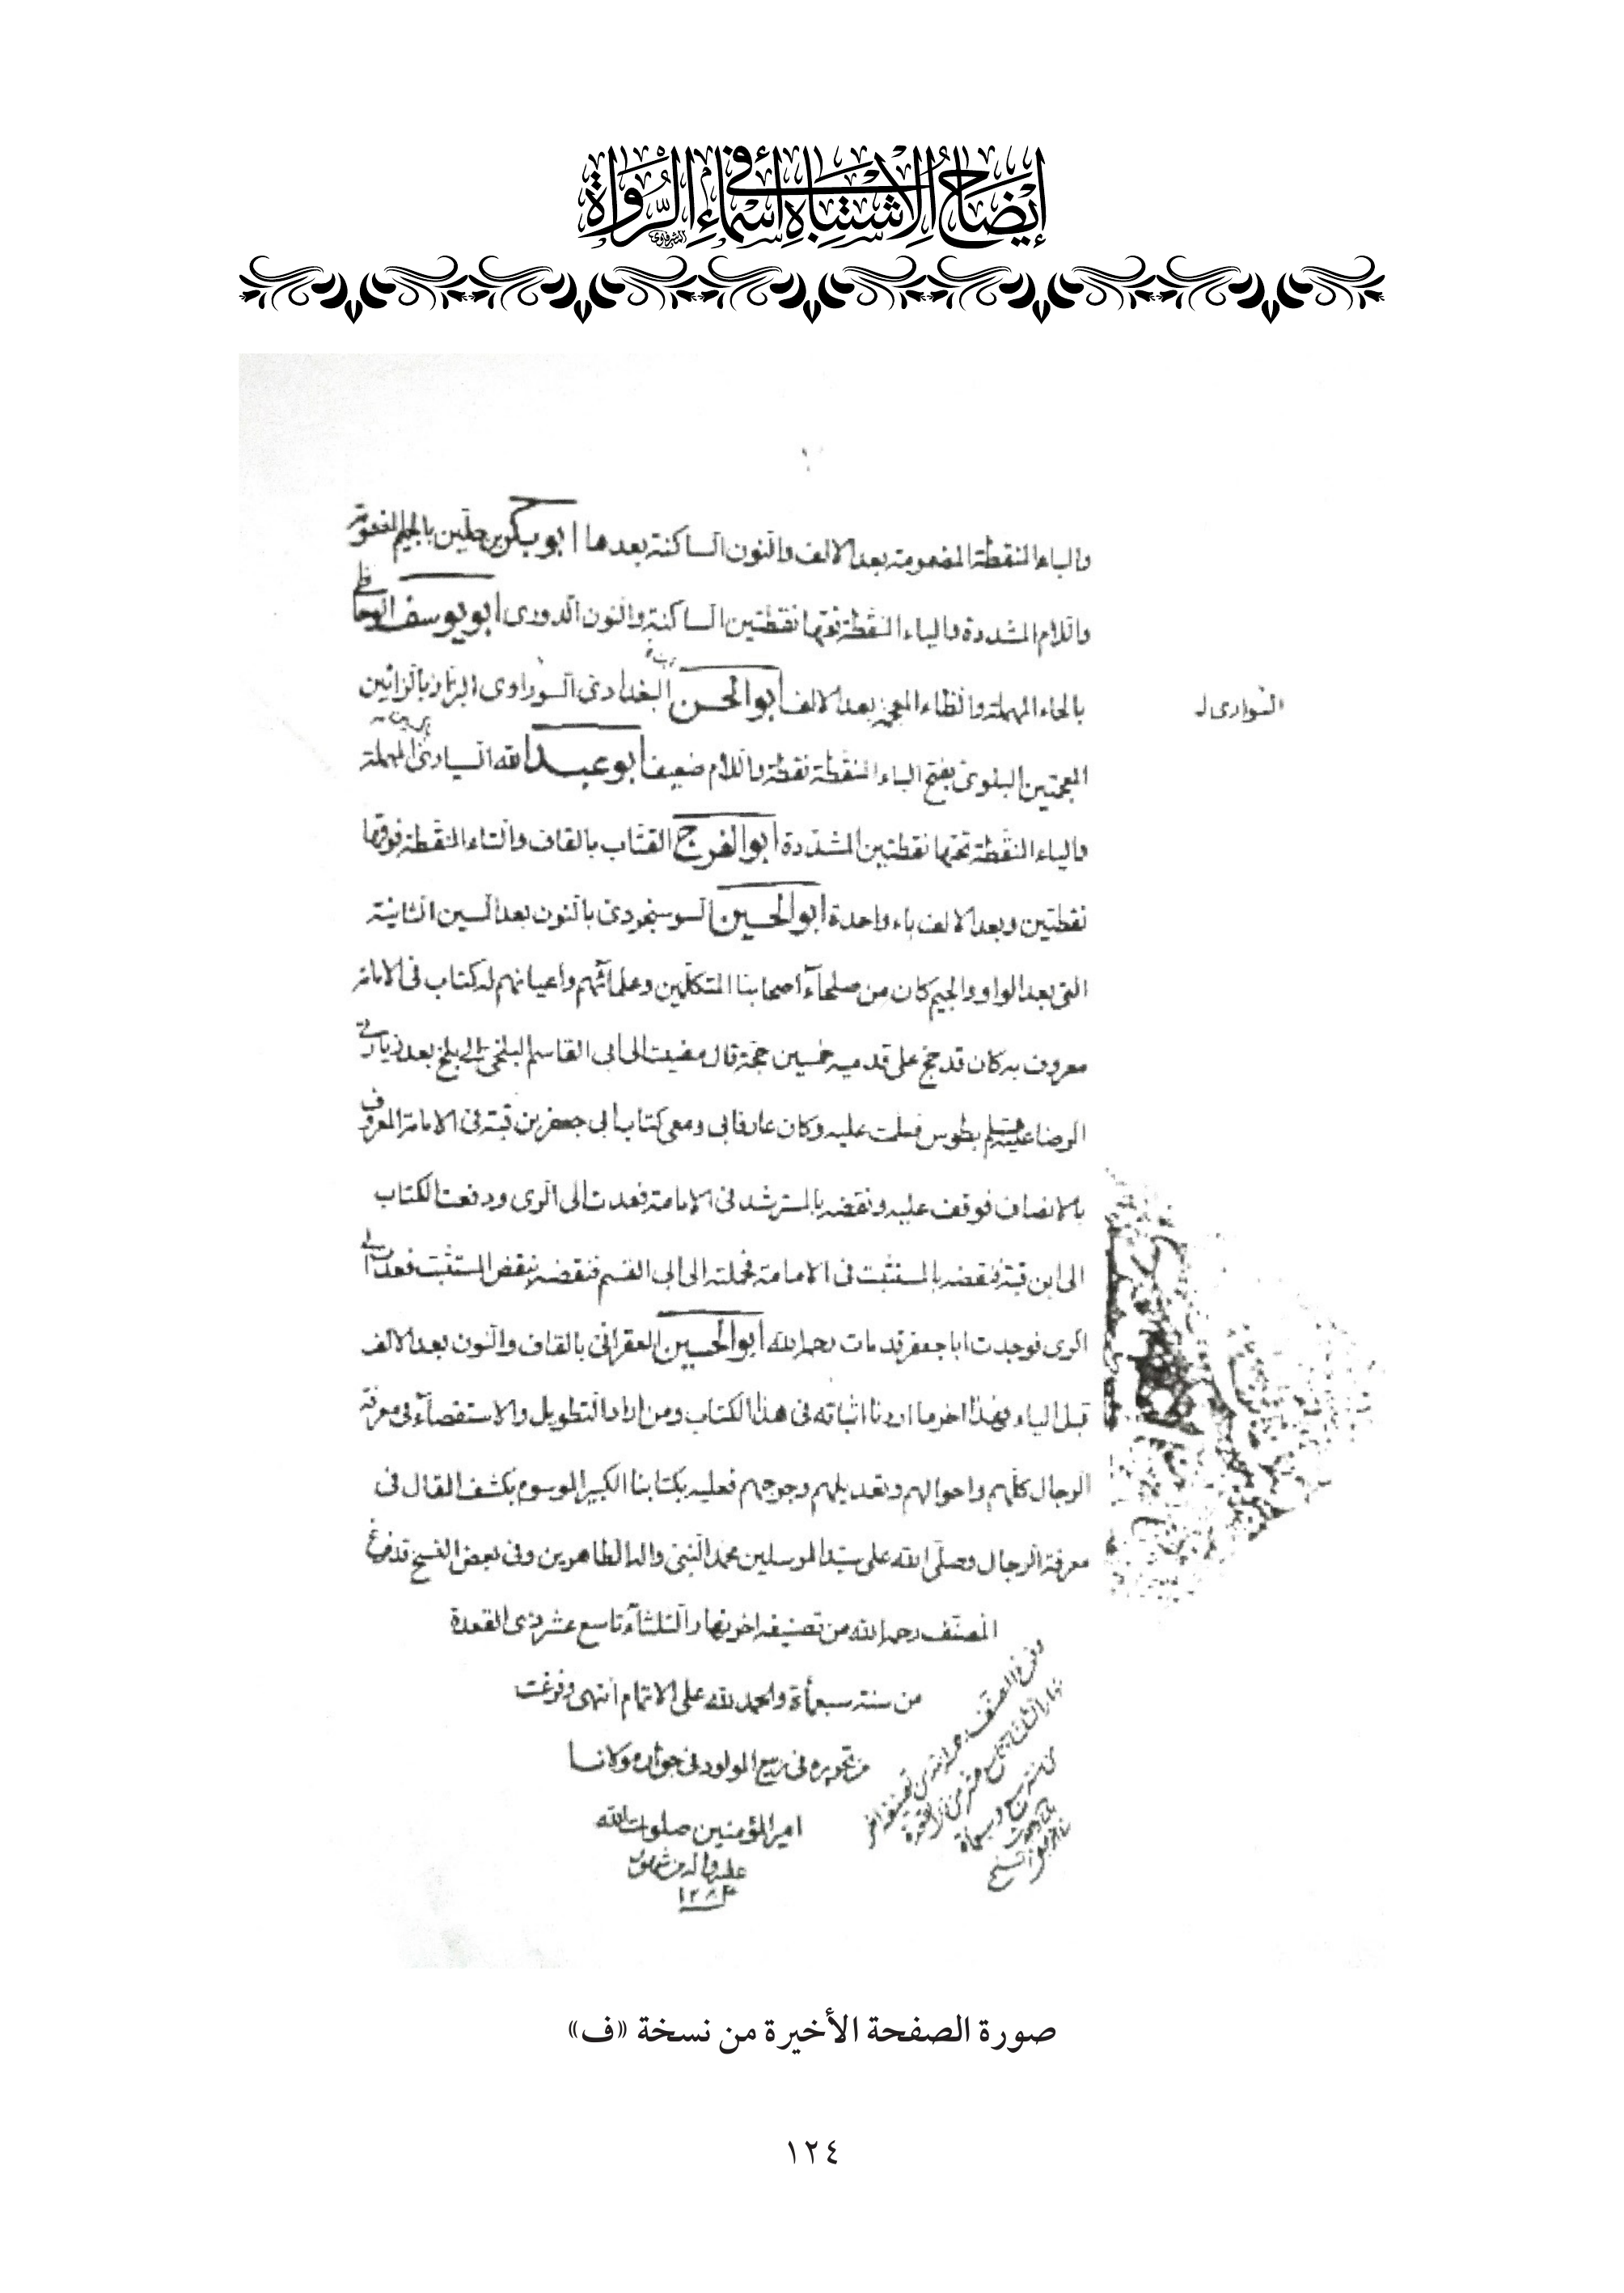 إيضاح الاشتباه في أسماء الرواة
والباء المنقطة المضمومة بعد الالف والنون الساكنة بعدها ابو بكر بن جلين بالجيم المفتوحة
واللام المشددة والياء المنقطة تحتها نقطتين الساكنة والنون الدوري ابو يوسف الوحاظي
بالحاء المهملة والظاء المعجمة بعد الالف ابو الحسن البغدادي السوراوي البزاز بالزائين
السوادى ل
المعجمتين البلوي بفتح الباء المنقطة نقطة واللام ضعيف ابو عبد الله السياري المهملة
والياء المنقطة تحتها نقطتين المشددة ابو الفرج القتاب بالقاف والتاء المنقطة فوقها
نقطتين وبعد الالف باء واحدة ابو الحسين السوسنجردي بالنون بعد السين الثانية
التي بعد الواو والجيم كان من صلحاء اصحابنا المتكلمين وعلمائهم واعيانهم له كتاب في الامامة
معروف به كان قد حج على قدميه خمسين حجة قال مضيت الى ابي القاسم البلخي الى بلخ بعد زيارتي
الرضا عليه السلم بطوس فسلمت عليه وكان عارفا بي ومعي كتاب ابي جعفر بن قبة في الامامة المعروف
بالانصاف فوقف عليه ونقضه بالمسترشد في الامامة فعدت الى الرى ودفعت الكتاب
الى ابن قبة فنقضه بالمستثبت في الامامة فحملته الى ابي القسم فنقضه بنقض المستثبت فعدت الى
الرى فوجدت ابا جعفر قد مات رحمه الله ابو الحسين العقراني بالقاف والنون بعد الالف
قبل الياء فهذا اخر ما اردنا اثباته في هذا الكتاب ومن اراد التطويل والاستقصاء في معرفة
الرجال كلهم واحوالهم وتعديلهم وجرحهم فعليه بكتابنا الكبير الموسوم بكشف المقال في
معرفة الرجال وصلى الله على سيد المرسلين محمد النبي واله الطاهرين وفي بعض النسخ قد فرغ
المصنف رحمه الله من تصنيفه اخر نهار الثلثاء تاسع عشر ذي القعدة
من سنة سبعمأة والحمد لله على الاتمام انتهى وفرغت
من تحريره في ربيع المولود في جوار مولانا
امير المؤمنين صلوات الله
عليه واله من شهور
١٢٨٤
وفرغ المصنف رحمه الله من تصنيفه اخر
نهار الثلثاء تاسع عشر من ذي القعدة
من سنة سبع وسبعمأة
صورة الصفحة الأخيرة من نسخة «ف»
١٢٤